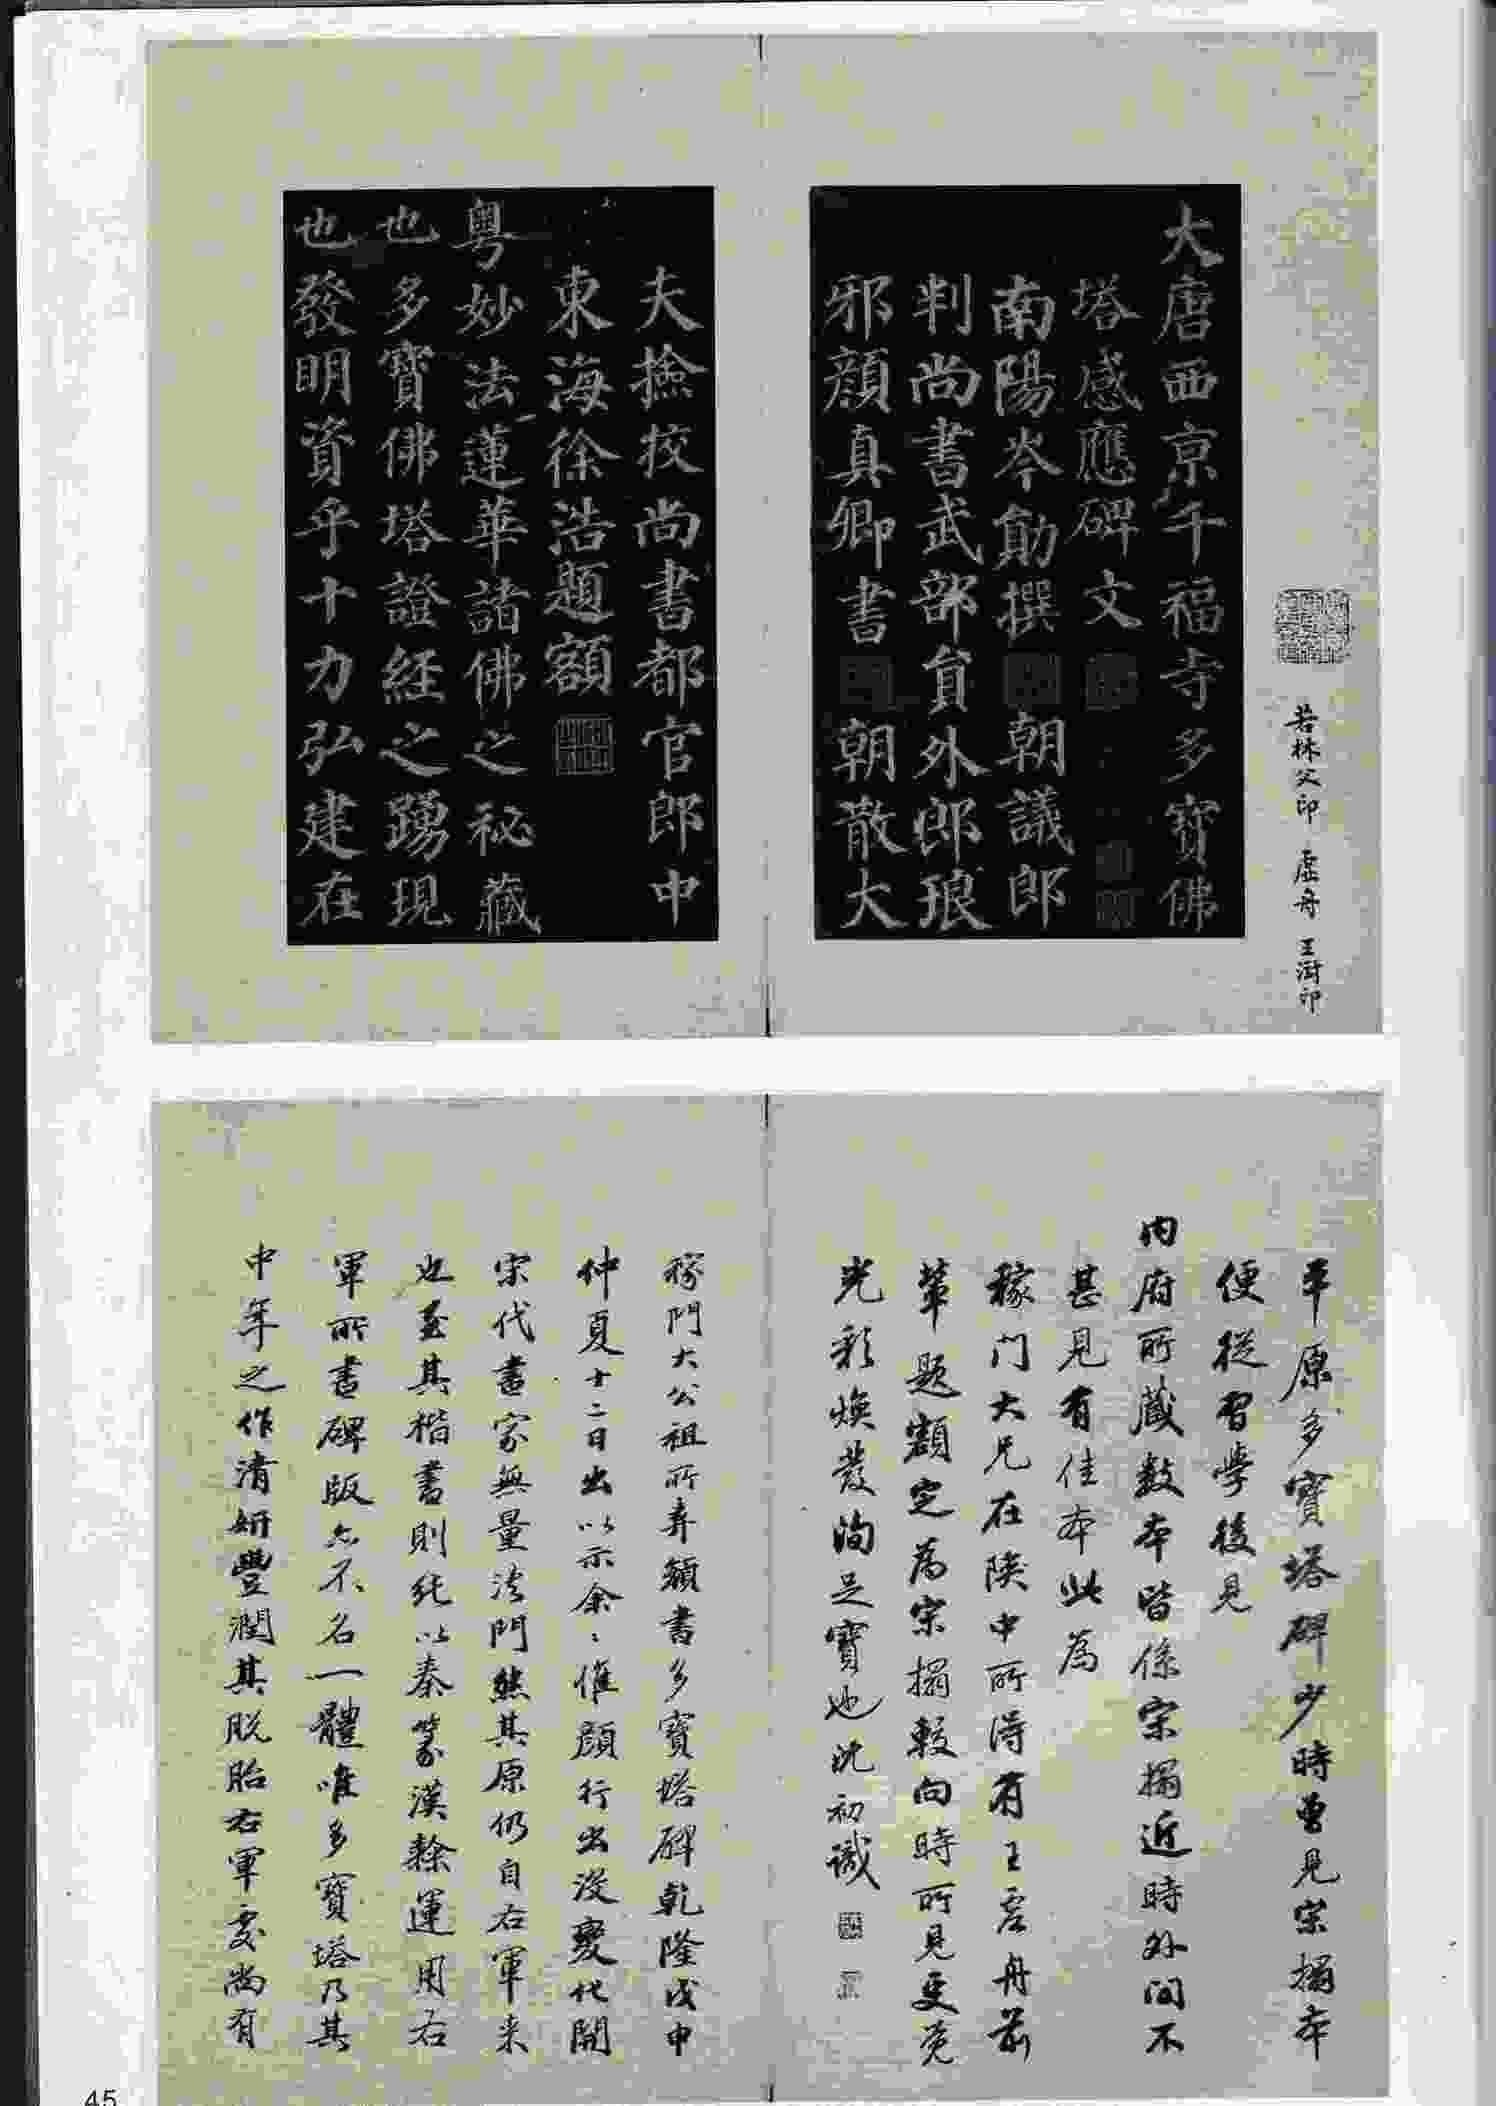 若林父印 虛舟 王澍印
大唐西京千福寺多寶佛
塔感應碑文
南陽岑勛撰 朝議郎
判尚書武部貟外郎琅
邪顏真卿書 朝散大
夫撿挍尚書都官郎中
東海徐浩題額
粵妙法蓮華諸佛之祕藏
也多寶佛塔證經之踴現
也發明資乎十力弘建在
平原多寶塔碑少時曾見宋搨本
便從習學後見
內府所藏數本皆係宋搨近時外間不
甚見有佳本此為
稼门大兄在陕中所得有王虛舟前
輩題額定為宋搨較向時所見更覺
光彩煥發洵足寶也沈初識
稼門大公祖所弆顏書多寶塔碑乾隆戊申
仲夏十二日出以示余〻惟顏行出沒變化開
宋代書家無量法門然其原仍自右軍来
也至其楷書則純以秦篆漢隸運用右
軍所書碑版亦不名一體唯多寶塔乃其
中年之作清妍豐潤其脫胎右軍處尚有
45